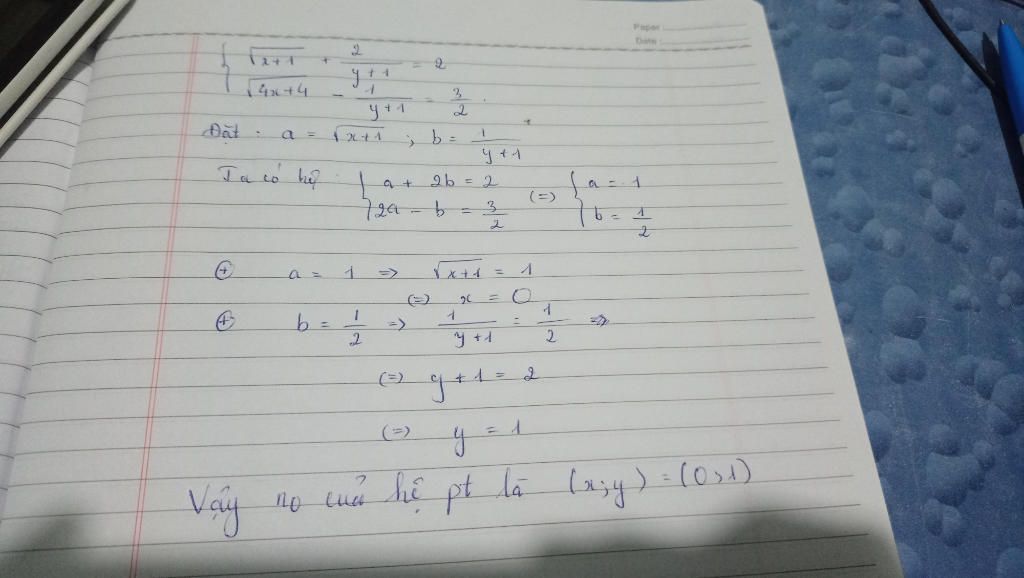 Paper :
Date :
{ √(x+1) + 2/(y+1) = 2
√(4x+4) - 1/(y+1) = 3/2 .
Đặt : a = √(x+1) ; b = 1/(y+1)
Ta có hệ : { a + 2b = 2 (=) { a = 1
2a - b = 3/2 b = 1/2
⊕ a = 1 => √(x+1) = 1
(=) x = 0
⊕ b = 1/2 => 1/(y+1) = 1/2 =>
(=) y + 1 = 2
(=) y = 1
Vậy no của hệ pt là (x;y) = (0;1)